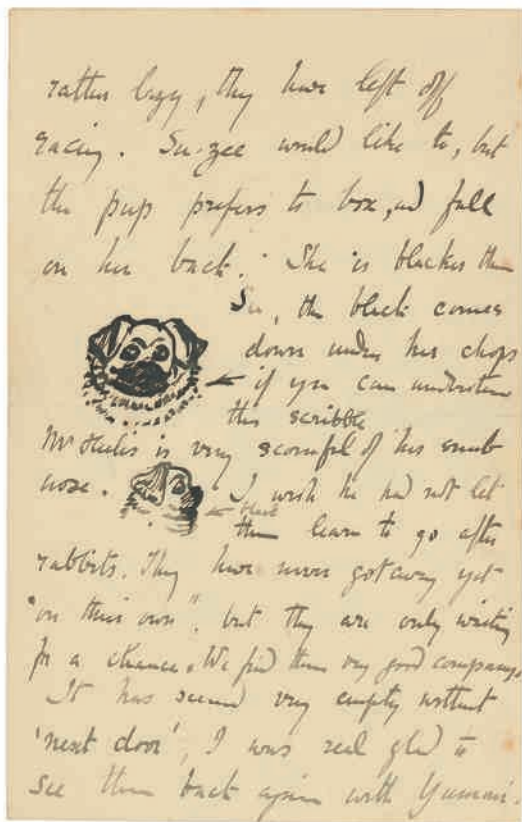 rather lazy, they have left off
racing. Su-zee would like to, but
the pup prefers to box, and fall
on her back. She is blacker than
Su, the black comes
down under her chops
if you can understand
this scribble
Mr Heelis is very scornful of her snub
nose. I wish he had not let
black
them learn to go after
rabbits. They have never got away yet
"on their own", but they are only waiting
for a chance. We find them very good company.
It has seemed very empty without
'next door', I was real glad to
see them back again with Yummi.